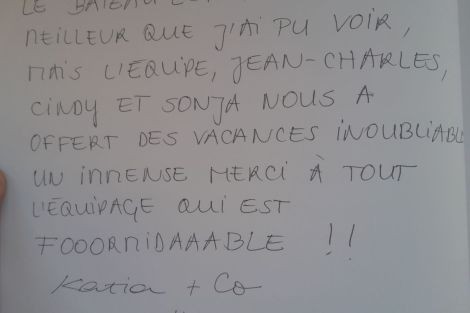 LE BATEAU
MEILLEUR QUE J'AI PU VOIR,
MAIS L'ÉQUIPE, JEAN-CHARLES,
CINDY ET SONJA NOUS A
OFFERT DES VACANCES INOUBLIABL
UN IMMENSE MERCI À TOUT
L'ÉQUIPAGE QUI EST
FOOORMIDAAABLE !!
Katia + Co